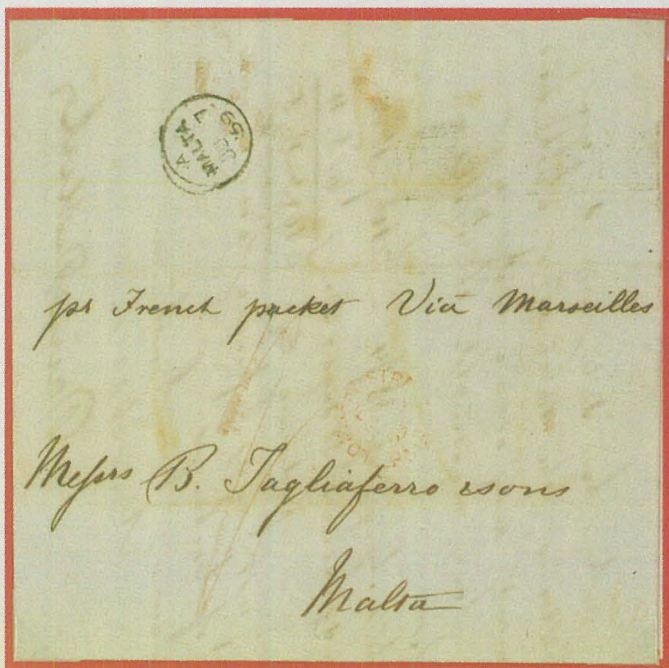 A
MALTA
7
59
pr French packet Via Marseilles
Messrs B. Tagliaferro & sons
Malta